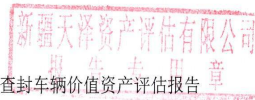 新疆天泽资产评估有限公司
报告专用章
查封车辆价值资产评估报告